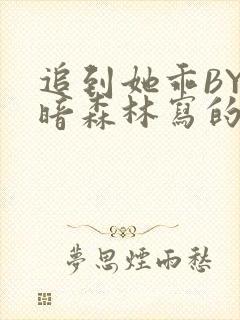 追到她乖BY
暗森林寫的
夢思煙雨愁